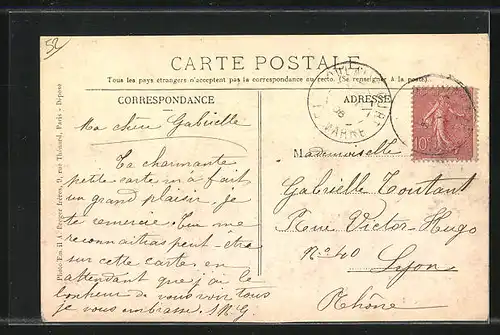 52
CARTE POSTALE
Tous les pays étrangers n'acceptent pas la correspondance au recto. (Se renseigner à la poste).
CORRESPONDANCE
ADRESSE
Ma chère Gabrielle
La charmante
petite carte m'a fait
un grand plaisir, je
te remercie. Tu me
reconnaitras peut-être
sur cette carte. en
attendant que j'ai le
bonheur de vous voir tous
je vous embrasse. M.G
Mademoiselle
Gabrielle Toutant
Rue Victor-Hugo
No 40
Lyon
Rhône
10c
MARNE
Photo-Em. il A. Berger frères, 9, rue Thénard, Paris - Déposé